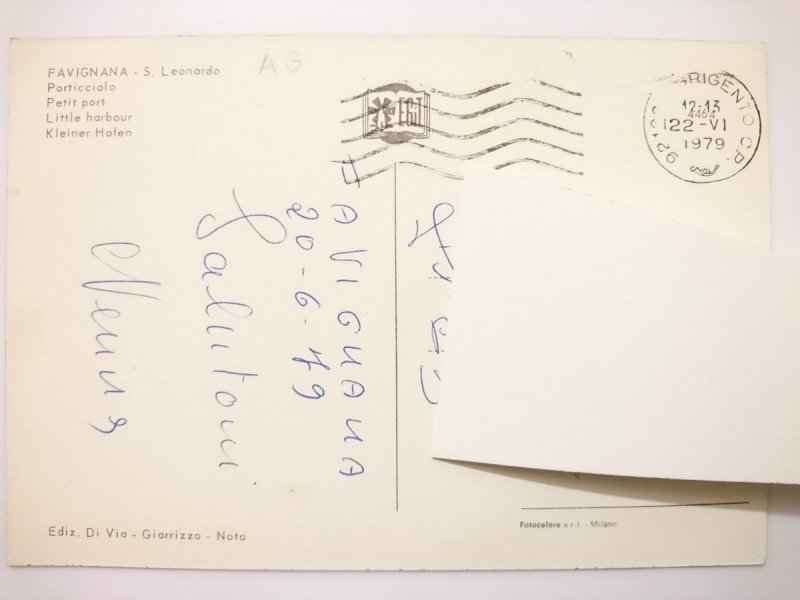 FAVIGNANA - S. Leonardo
Porticciolo
Petit port
Little harbour
Kleiner Hafen
AG
RIGENTO C.P.
12-13
4464
22-VI
1979
FAVIGNANA
20-6-79
Salutoni
Ediz. Di Via - Giarrizzo - Noto
Fotocelere s.r.l. - Milano